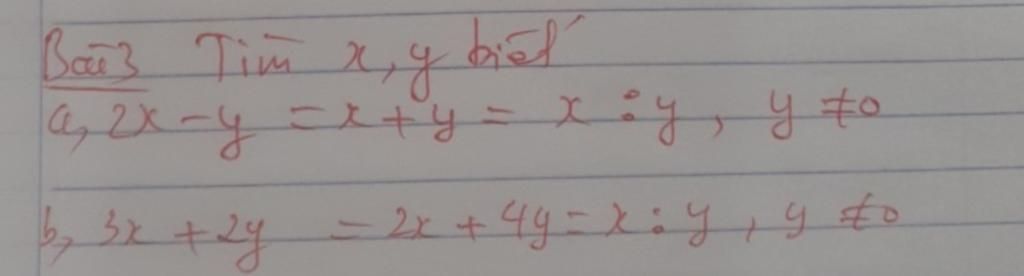 Bài 3 Tìm x, y biết
a, 2x - y = x + y = x : y , y ≠ 0
b, 3x + 2y = 2x + 4y = x : y , y ≠ 0